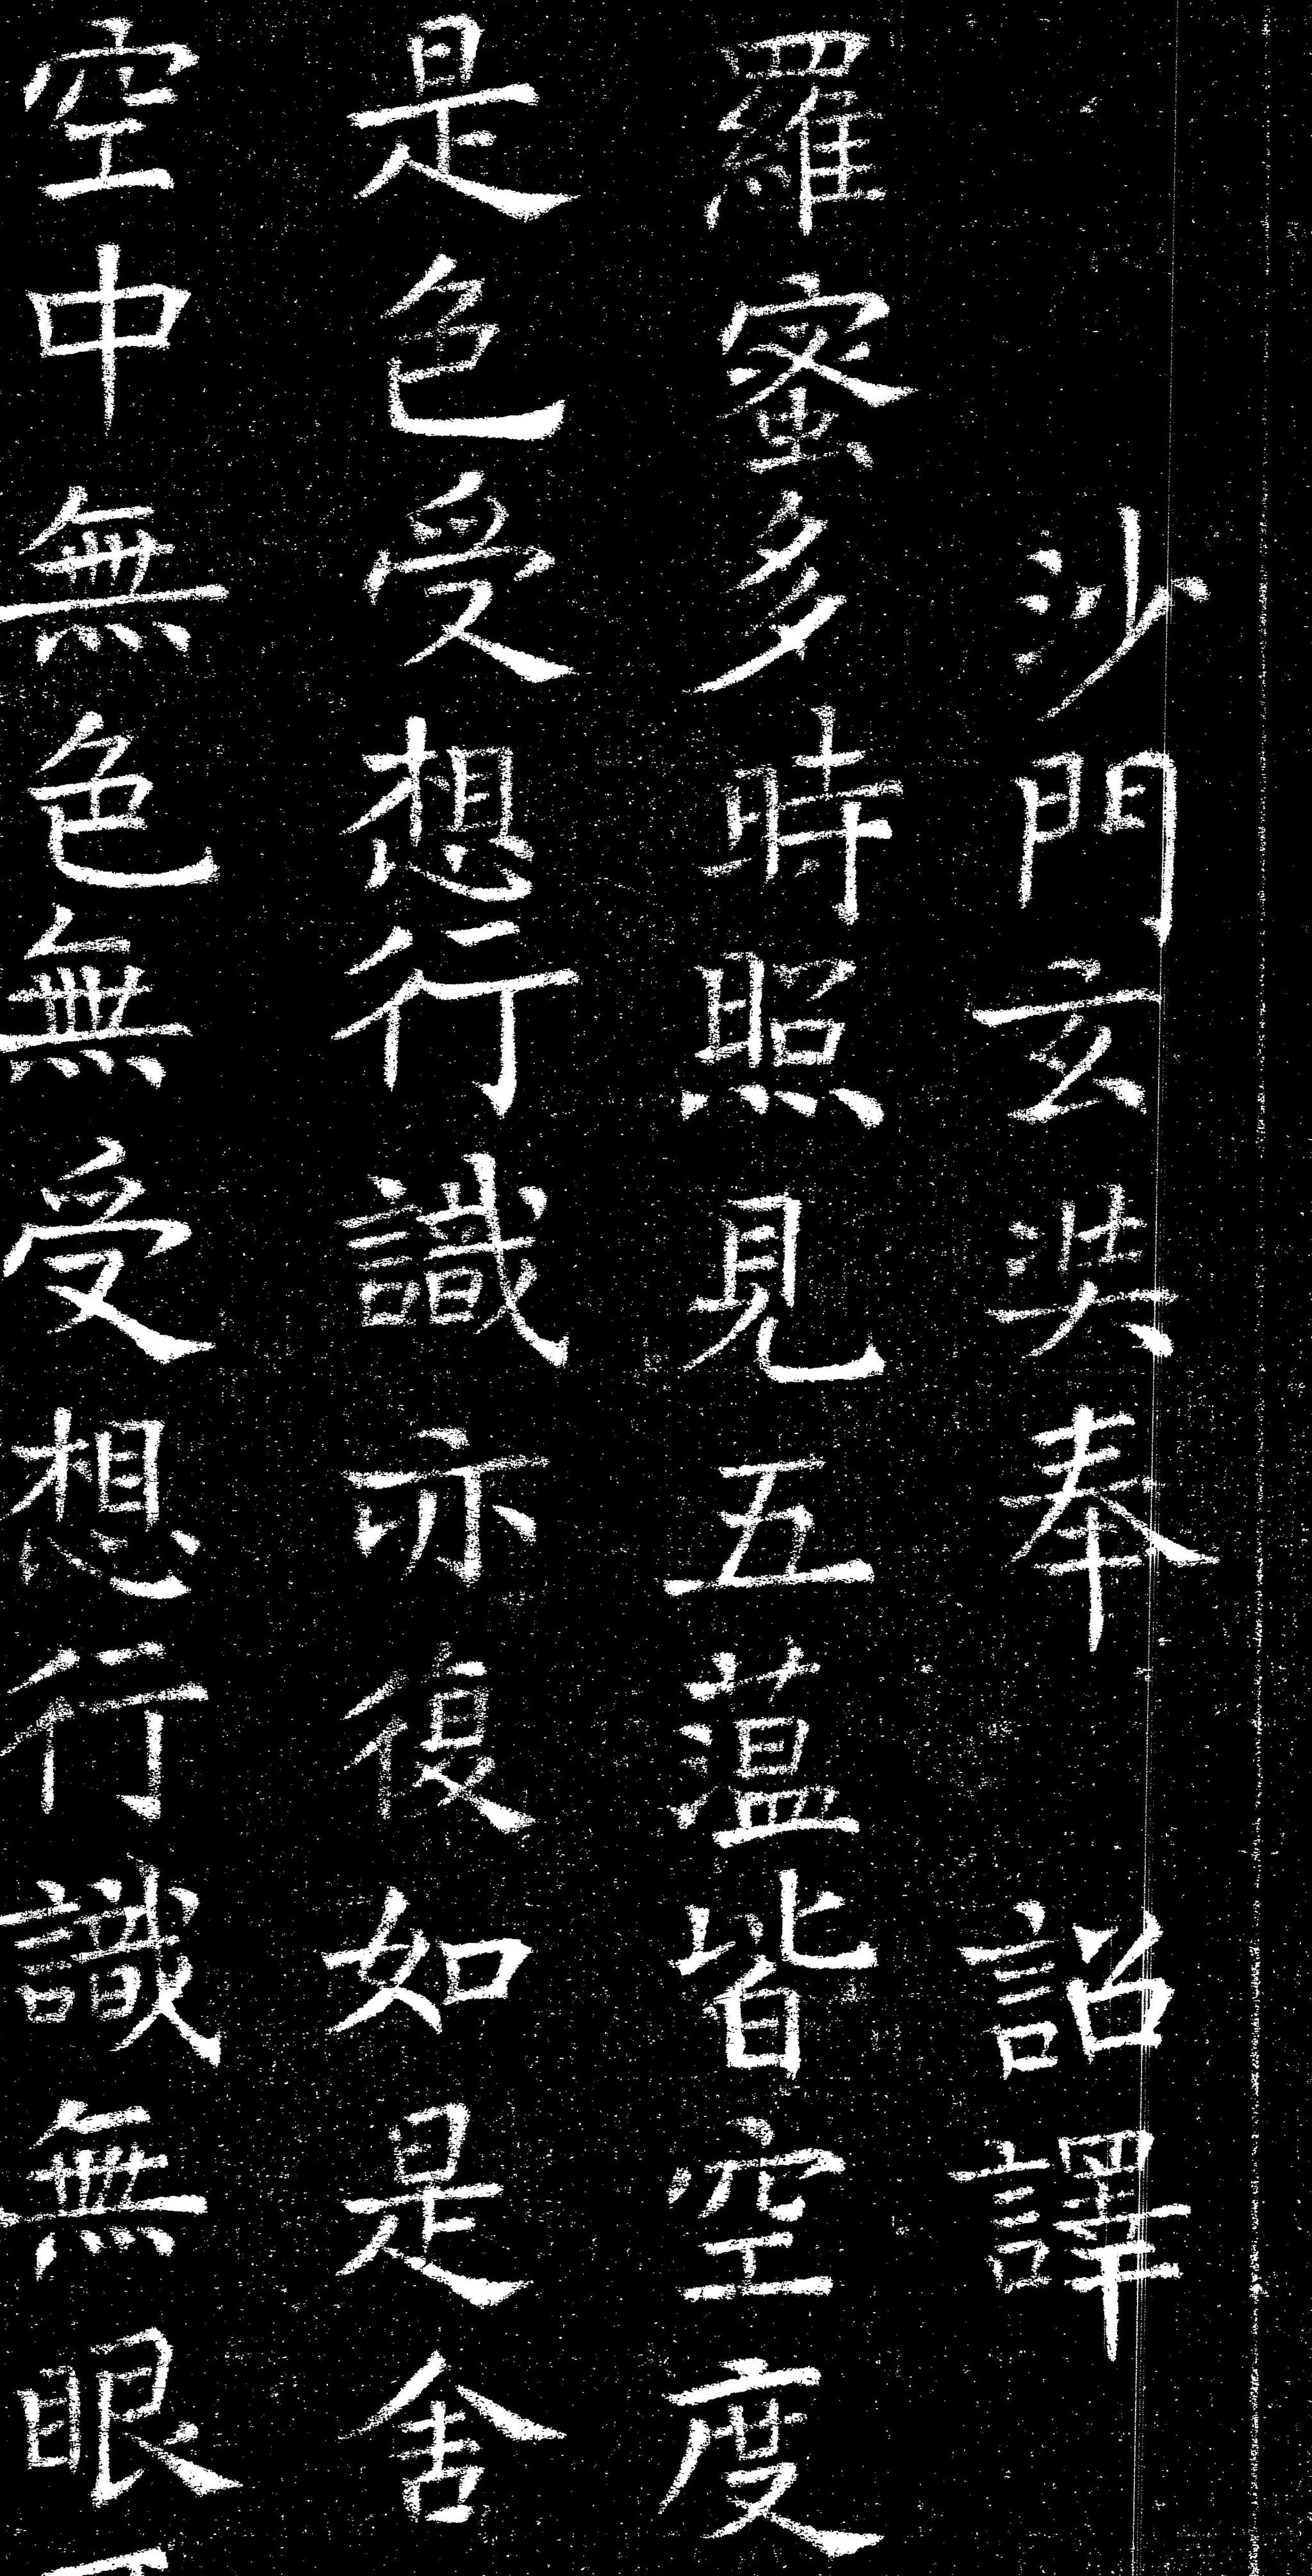 沙門玄奘奉 詔譯
羅蜜多時照見五蘊皆空度
是色受想行識亦復如是舍
空中無色無受想行識無眼